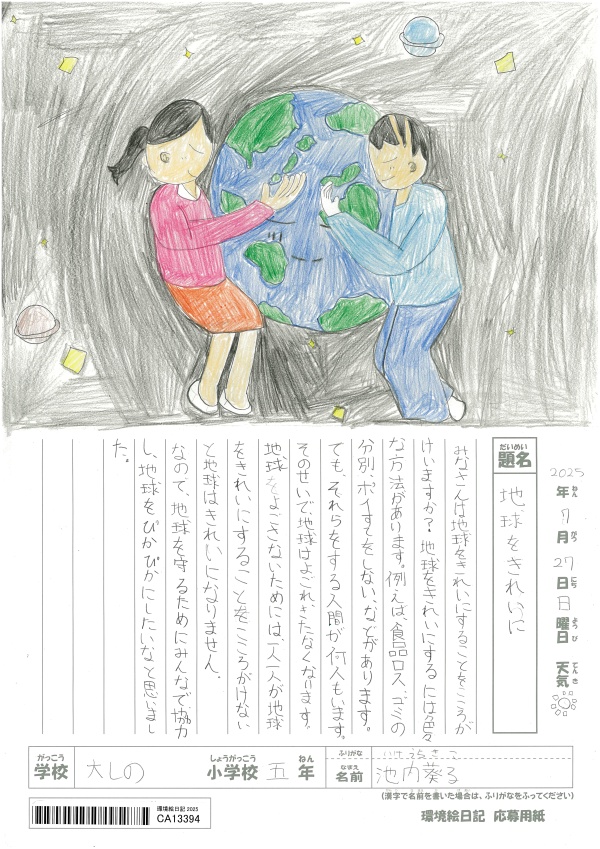 2025年7月27日日曜日 天気
ねん がつ にち ようび てんき
だいめい
題名
地球をきれいに
みなさんは地球をきれいにすることをこころが
けいますか?地球をきれいにするには色々
な方法があります。例えば、食品ロス、ゴミの
分別、ポイすてをしない、などがあります。
ても、それらをする人間が何人もいます。
そのせいで、地球はよごれ、きたなくなります。
地球をよごさないためには、一人一人が地球
をきれいにすることをこころがけない
と地球はきれいになりません。
なので、地球を守るためにみんなで協力
し、地球をぴかぴかにしたいなと思いまし
た。
がっこう しょうがっこう ねん ふりがな
学校 大しの 小学校 五年
なまえ
名前 池内葵る
(漢字で名前を書いた場合は、ふりがなをふってください)
環境絵日記 2025
CA13394
環境絵日記 応募用紙